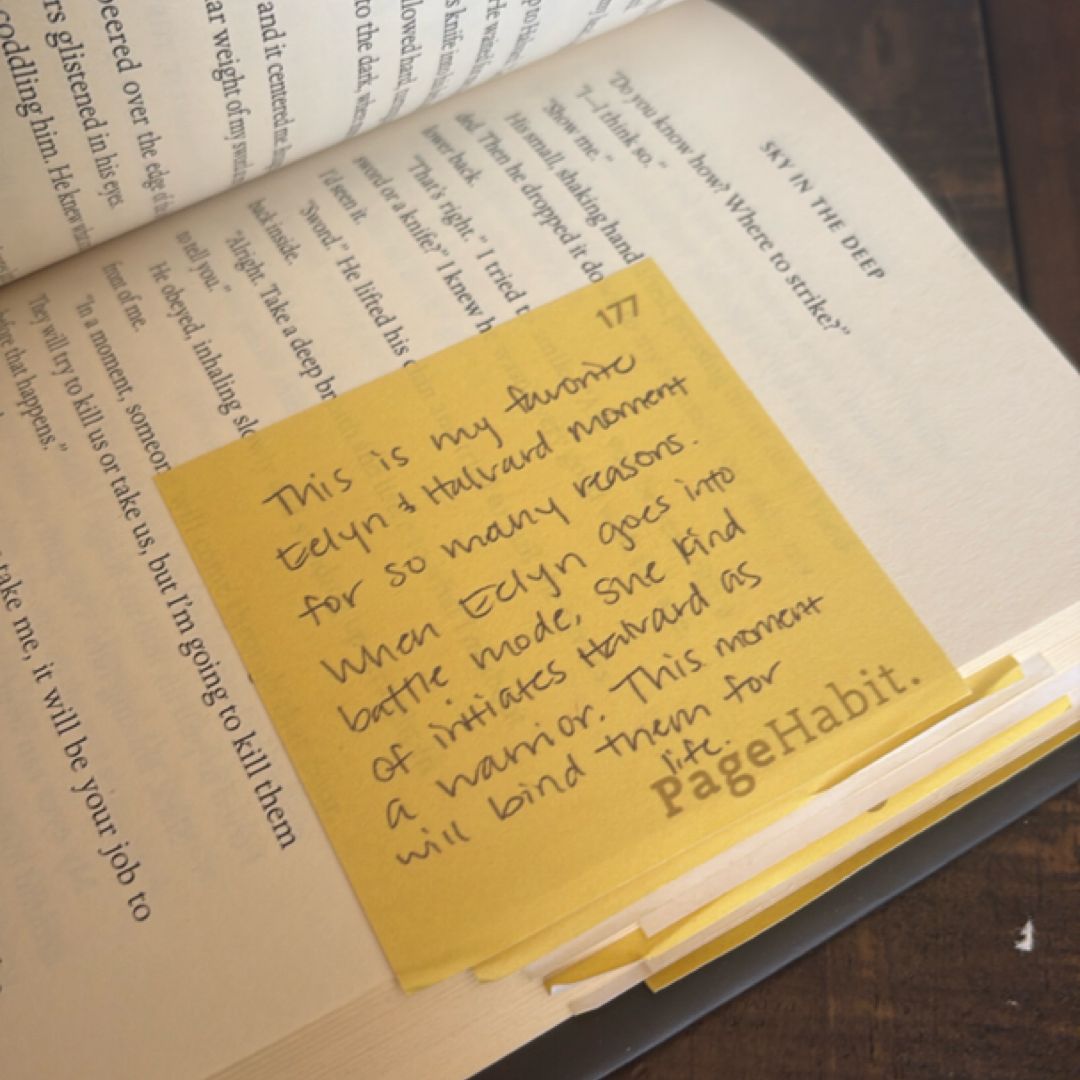 peered over the edge of
rs glistened in his eyes
coddling him. He knew
and it centered me
ar weight of my
to the dark, when
SKY IN THE DEEP
"Do you know how? Where to strike?"
"I—I think so."
"Show me."
His small, shaking hand
ded. Then he dropped it do
lower back.
"That's right." I tried t
sword or a knife?" I knew h
I'd seen it.
"Sword." He lifted his
back inside.
"Alright. Take a deep br
to tell you."
He obeyed, inhaling slo
front of me.
"In a moment, someon
They will try to kill us or take us, but I'm going to kill them
before that happens."
take me, it will be your job to
177
This is my favorite
Eelyn & Halvard moment
for so many reasons.
When Eelyn goes into
battle mode, she kind
of initiates Halvard as
a warrior. This moment
will bind them for
life.
PageHabit.